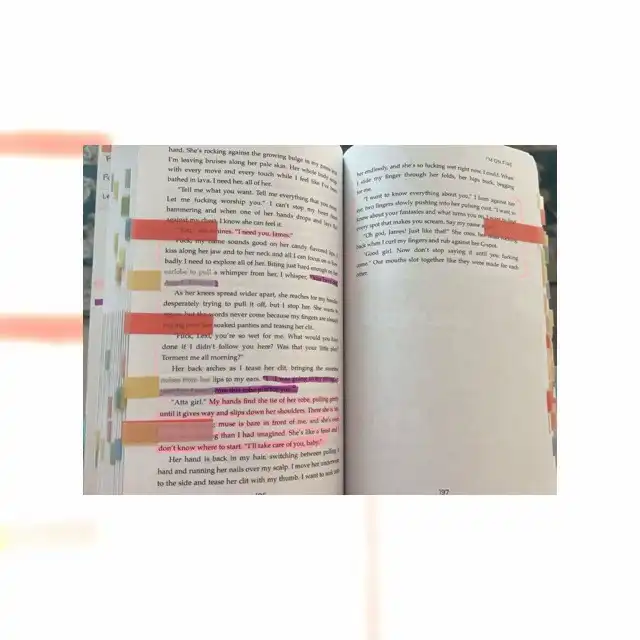 hard. She's rocking against the growing bulge in my
I'm leaving bruises along her pale skin. Her whole body
with every move and every touch while I feel like I've been
bathed in lava. I need her, all of her.
"Tell me what you want. Tell me everything that you
Let me fucking worship you." I can't stop my heart from
hammering and when one of her hands drops and lays flat
against my chest, I know she can feel it.
"I need you, James."
Fuck, my name sounds good on her candy flavored lips. I
kiss along her jaw and to her neck and all I can focus on is how
badly I need to explore all of her. Biting just hard enough on her
earlobe to pull a whimper from her, I whisper,
As her knees spread wider apart, she reaches for my
desperately trying to pull it off, but I stop her. She
words never come because my fingers are already
soaked panties and teasing her clit.
"Fuck, Lexi, you're so wet for me. What would you have
done if I didn't follow you here? Was that your little plan?
Torment me all morning?"
Her back arches as I tease her clit, bringing the
lips to my ears.
"Atta girl." My hands find the tie of her robe, pulling gently
until it gives way and slips down her shoulders. There she is, my
muse is bare in front of me, and she's
than I had imagined. She's like a feast and I
don't know where to start. "I'll take care of you, baby."
Her hand is back in my hair, switching between pulling it
hard and running her nails over my scalp. I move her underwear
to the side and tease her clit with my thumb. I want to
her endlessly, and she's so fucking wet right now, I could. When
I slide my finger through her folds, her hips buck, begging
for me.
"I want to know everything about you." I lean against her
two fingers slowly pushing into her pulsing core. "I want to
know about your fantasies and what turns you on. I want to find
every spot that makes you scream. Say my name
"Oh god, James! Just like that!" She
back when I curl my fingers and rub against her G-spot.
"Good girl. Now don't stop saying it until you fucking
come." Our mouths slot together like they were made for each
other.
197